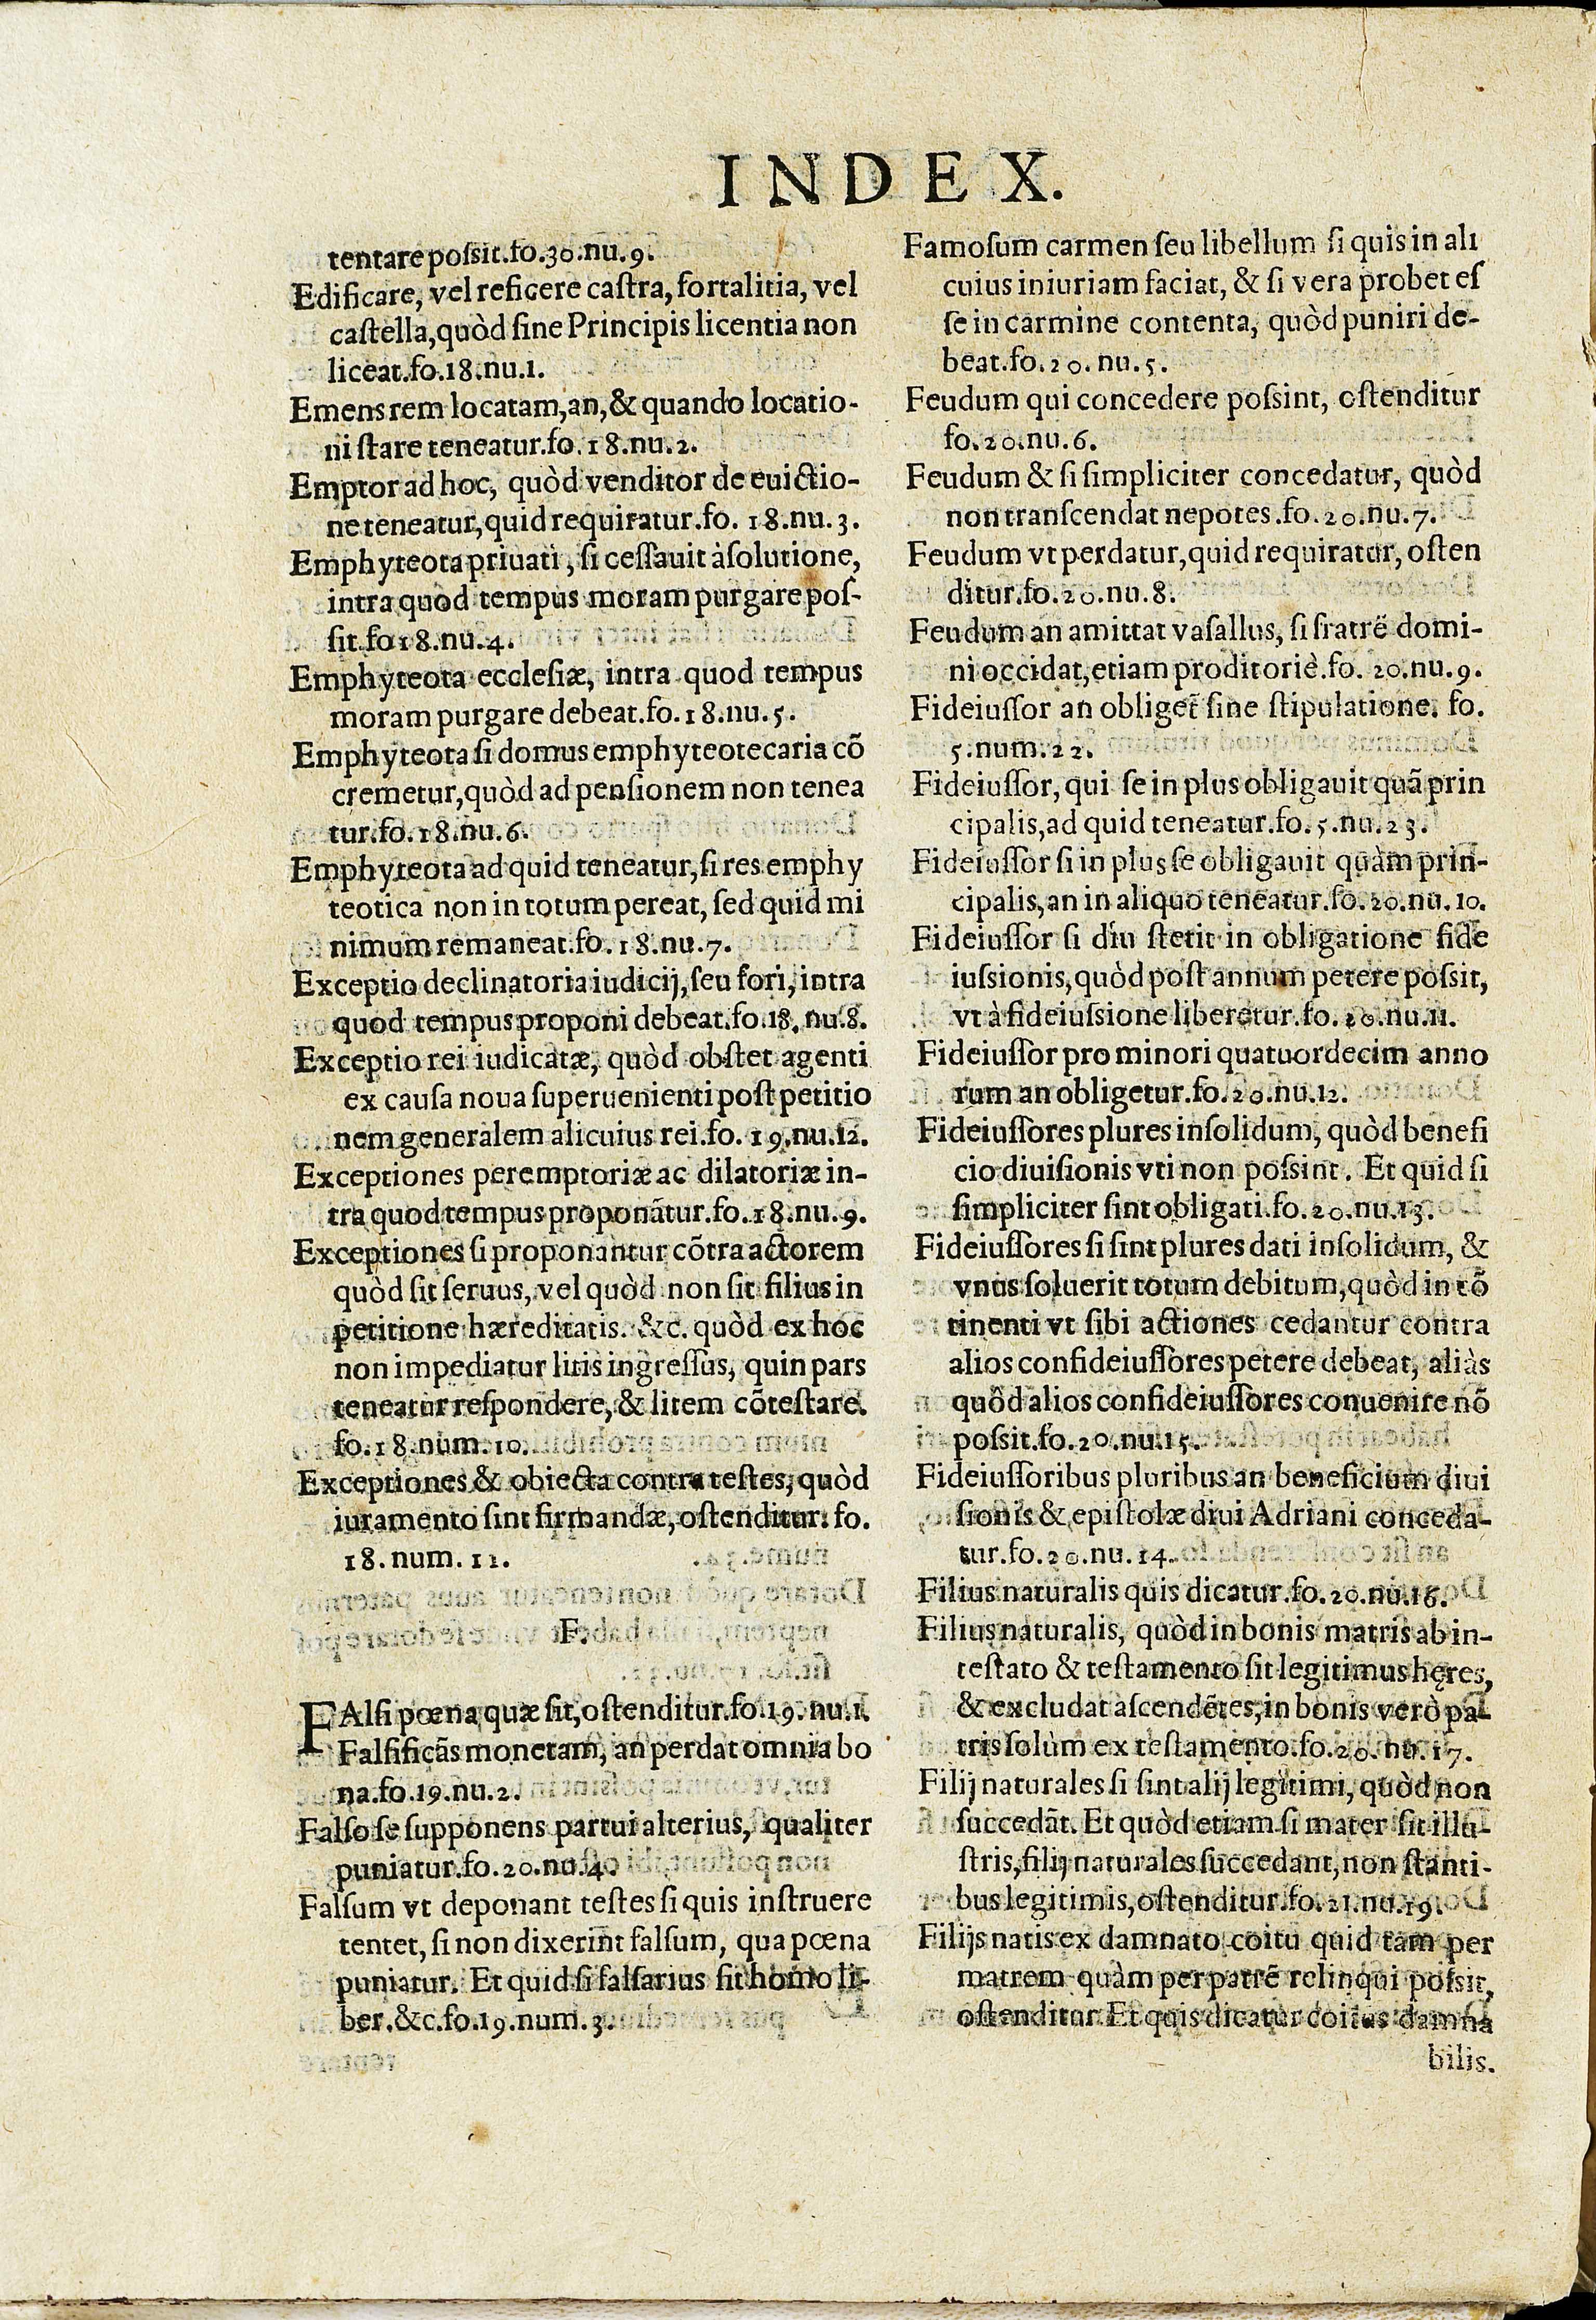 INDEX.
tentare poſsit.fo.30.nu.9.
Edificare, vel reficere caſtra, fortalitia, vel
caſtella, quòd ſine Principis licentia non
liceat.fo.18.nu.1.
Emens rem locatam, an, & quando locatio-
ni ſtare teneatur.fo.18.nu.2.
Emptor ad hoc, quòd venditor de euictio-
ne teneatur, quid requiratur.fo. 18.nu.3.
Emphyteota priuati, ſi ceſſauit à ſolutione,
intra quod tempus moram purgare poſ-
ſit.fo 18.nu.4.
Emphyteota eccleſiæ, intra quod tempus
moram purgare debeat.fo.18.nu.5.
Emphyteota ſi domus emphyteotecaria cõ
cremetur, quòd ad penſionem non tenea
tur.fo.18.nu.6.
Emphyteota ad quid teneatur, ſi res emphy
teotica non in totum pereat, ſed quid mi
nimum remaneat.fo.18.nu.7.
Exceptio declinatoria iudicij, ſeu fori, intra
quod tempus proponi debeat.fo.18.nu.8.
Exceptio rei iudicatæ, quòd obſtet agenti
ex cauſa noua ſuperuenienti poſt petitio
nem generalem alicuius rei.fo.19.nu.12.
Exceptiones peremptoriæ ac dilatoriæ in-
tra quod tempus proponãtur.fo.18.nu.9.
Exceptiones ſi proponantur cõtra actorem
quòd ſit ſeruus, vel quòd non ſit filius in
petitione hæreditatis. &c. quòd ex hoc
non impediatur litis ingreſſus, quin pars
teneatur reſpondere, & litem cõteſtare.
fo.18.num.10.
Exceptiones & obiecta contra teſtes, quòd
iuramento ſint firmandæ, oſtenditur. fo.
18.num.11.
F.
FAlſi pœna quæ ſit, oſtenditur.fo.19.nu.1.
Falſificãs monetam, an perdat omnia bo
na.fo.19.nu.2.
Falſo ſe ſupponens partui alterius, qualiter
puniatur.fo.20.nu.4.
Falſum vt deponant teſtes ſi quis inſtruere
tentet, ſi non dixerint falſum, qua pœna
puniatur. Et quid ſi falſarius ſit homo li-
ber.&c.fo.19.num.3.
Famoſum carmen ſeu libellum ſi quis in ali
cuius iniuriam faciat, & ſi vera probet eſ
ſe in carmine contenta, quòd puniri de-
beat.fo.20.nu.5.
Feudum qui concedere poſsint, oſtenditur
fo.20.nu.6.
Feudum & ſi ſimpliciter concedatur, quòd
non tranſcendat nepotes.fo.20.nu.7.
Feudum vt perdatur, quid requiratur, oſten
ditur.fo.20.nu.8.
Feudum an amittat vaſallus, ſi fratrẽ domi-
ni occidat, etiam proditoriè.fo. 20.nu.9.
Fideiuſſor an obliget̃ ſine ſtipulatione. fo.
5.num.22.
Fideiuſſor, qui ſe in plus obligauit quã prin
cipalis, ad quid teneatur.fo.5.nu.23.
Fideiuſſor ſi in plus ſe obligauit quàm prin-
cipalis, an in aliquo teneatur.fo.20.nu.10.
Fideiuſſor ſi diu ſtetit in obligatione fide
iuſsionis, quòd poſt annum petere poſsit,
vt à fideiuſsione liberetur.fo.20.nu.11.
Fideiuſſor pro minori quatuordecim anno
rum an obligetur.fo.20.nu.12.
Fideiuſſores plures inſolidum, quòd benefi
cio diuiſionis vti non poſsint. Et quid ſi
ſimpliciter ſint obligati.fo.20.nu.13.
Fideiuſſores ſi ſint plures dati inſolidum, &
vnus ſoluerit totum debitum, quòd in cõ
tinenti vt ſibi actiones cedantur contra
alios confideiuſſores petere debeat, aliàs
quòd alios confideiuſſores conuenire nõ
poſsit.fo.20.nu.15.
Fideiuſſoribus pluribus an beneficium diui
ſionis & epiſtolæ diui Adriani conceda-
tur.fo.20.nu.14.
Filius naturalis quis dicatur.fo.20.nu.16.
Filius naturalis, quòd in bonis matris ab in-
teſtato & teſtamento ſit legitimus hęres,
& excludat aſcendẽtes, in bonis verò pa-
tris ſolùm ex teſtamento.fo.20.nu.17.
Filij naturales ſi ſint alij legitimi, quòd non
ſuccedãt. Et quòd etiam ſi mater ſit illu-
ſtris, filij naturales ſuccedant, non ſtanti-
bus legitimis, oſtenditur.fo.21.nu.19.
Filijs natis ex damnato coitu quid tam per
matrem quàm per patrẽ relinqui poſsit,
oſtenditur. Et quis dicatur coitus damna
bilis.